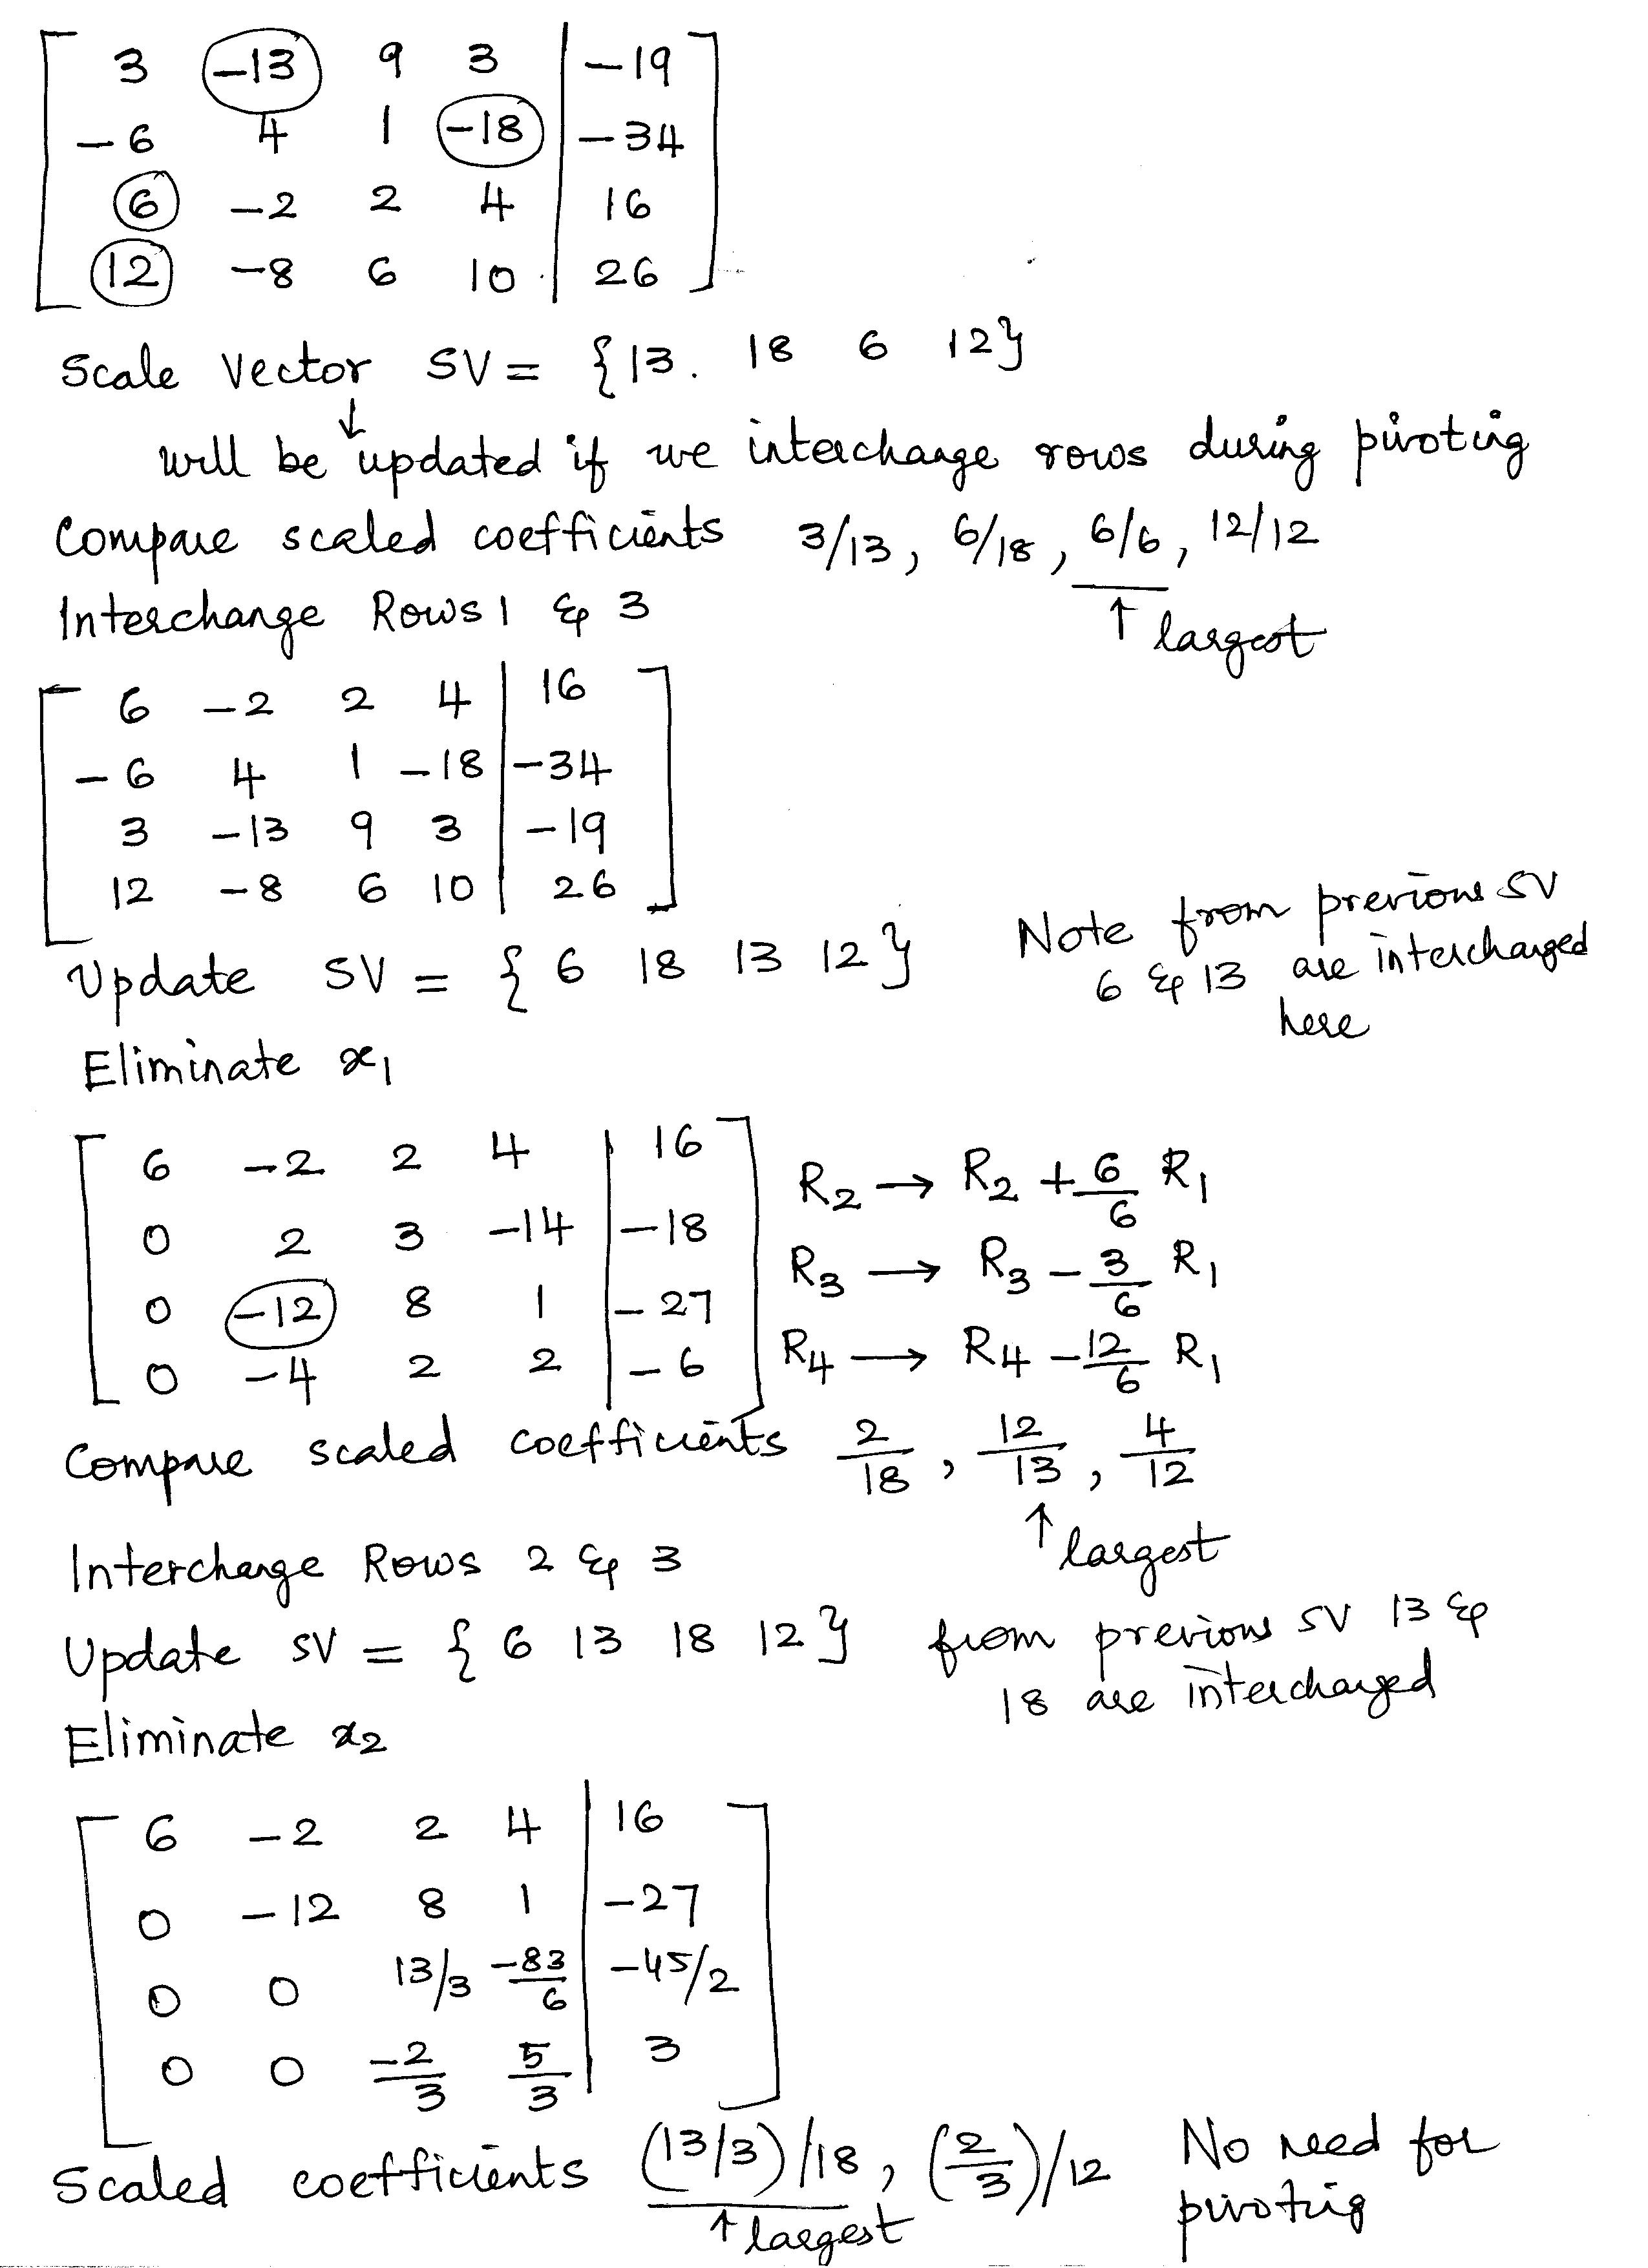 3 -13 9 3 | -19
-6 4 1 -18 | -34
6 -2 2 4 | 16
12 -8 6 10 | 26
Scale Vector SV = {13. 18 6 12}
↓
will be updated if we interchange rows during pivoting
Compare scaled coefficients 3/13, 6/18, 6/6, 12/12
Interchange Rows 1 & 3 ↑ largest
6 -2 2 4 | 16
-6 4 1 -18 | -34
3 -13 9 3 | -19
12 -8 6 10 | 26
Note from previous SV
Update SV = {6 18 13 12} 6 & 13 are interchanged
here
Eliminate x1
6 -2 2 4 | 16 R2 → R2 + 6/6 R1
0 2 3 -14 | -18
0 -12 8 1 | -27 R3 → R3 - 3/6 R1
0 -4 2 2 | -6 R4 → R4 - 12/6 R1
Compare scaled coefficients 2/18, 12/13, 4/12
↑ largest
Interchange Rows 2 & 3
Update SV = {6 13 18 12} from previous SV 13 &
18 are interchanged
Eliminate x2
6 -2 2 4 | 16
0 -12 8 1 | -27
0 0 13/3 -83/6 | -45/2
0 0 -2/3 5/3 | 3
Scaled coefficients (13/3)/18, (2/3)/12 No need for
↑ largest pivoting